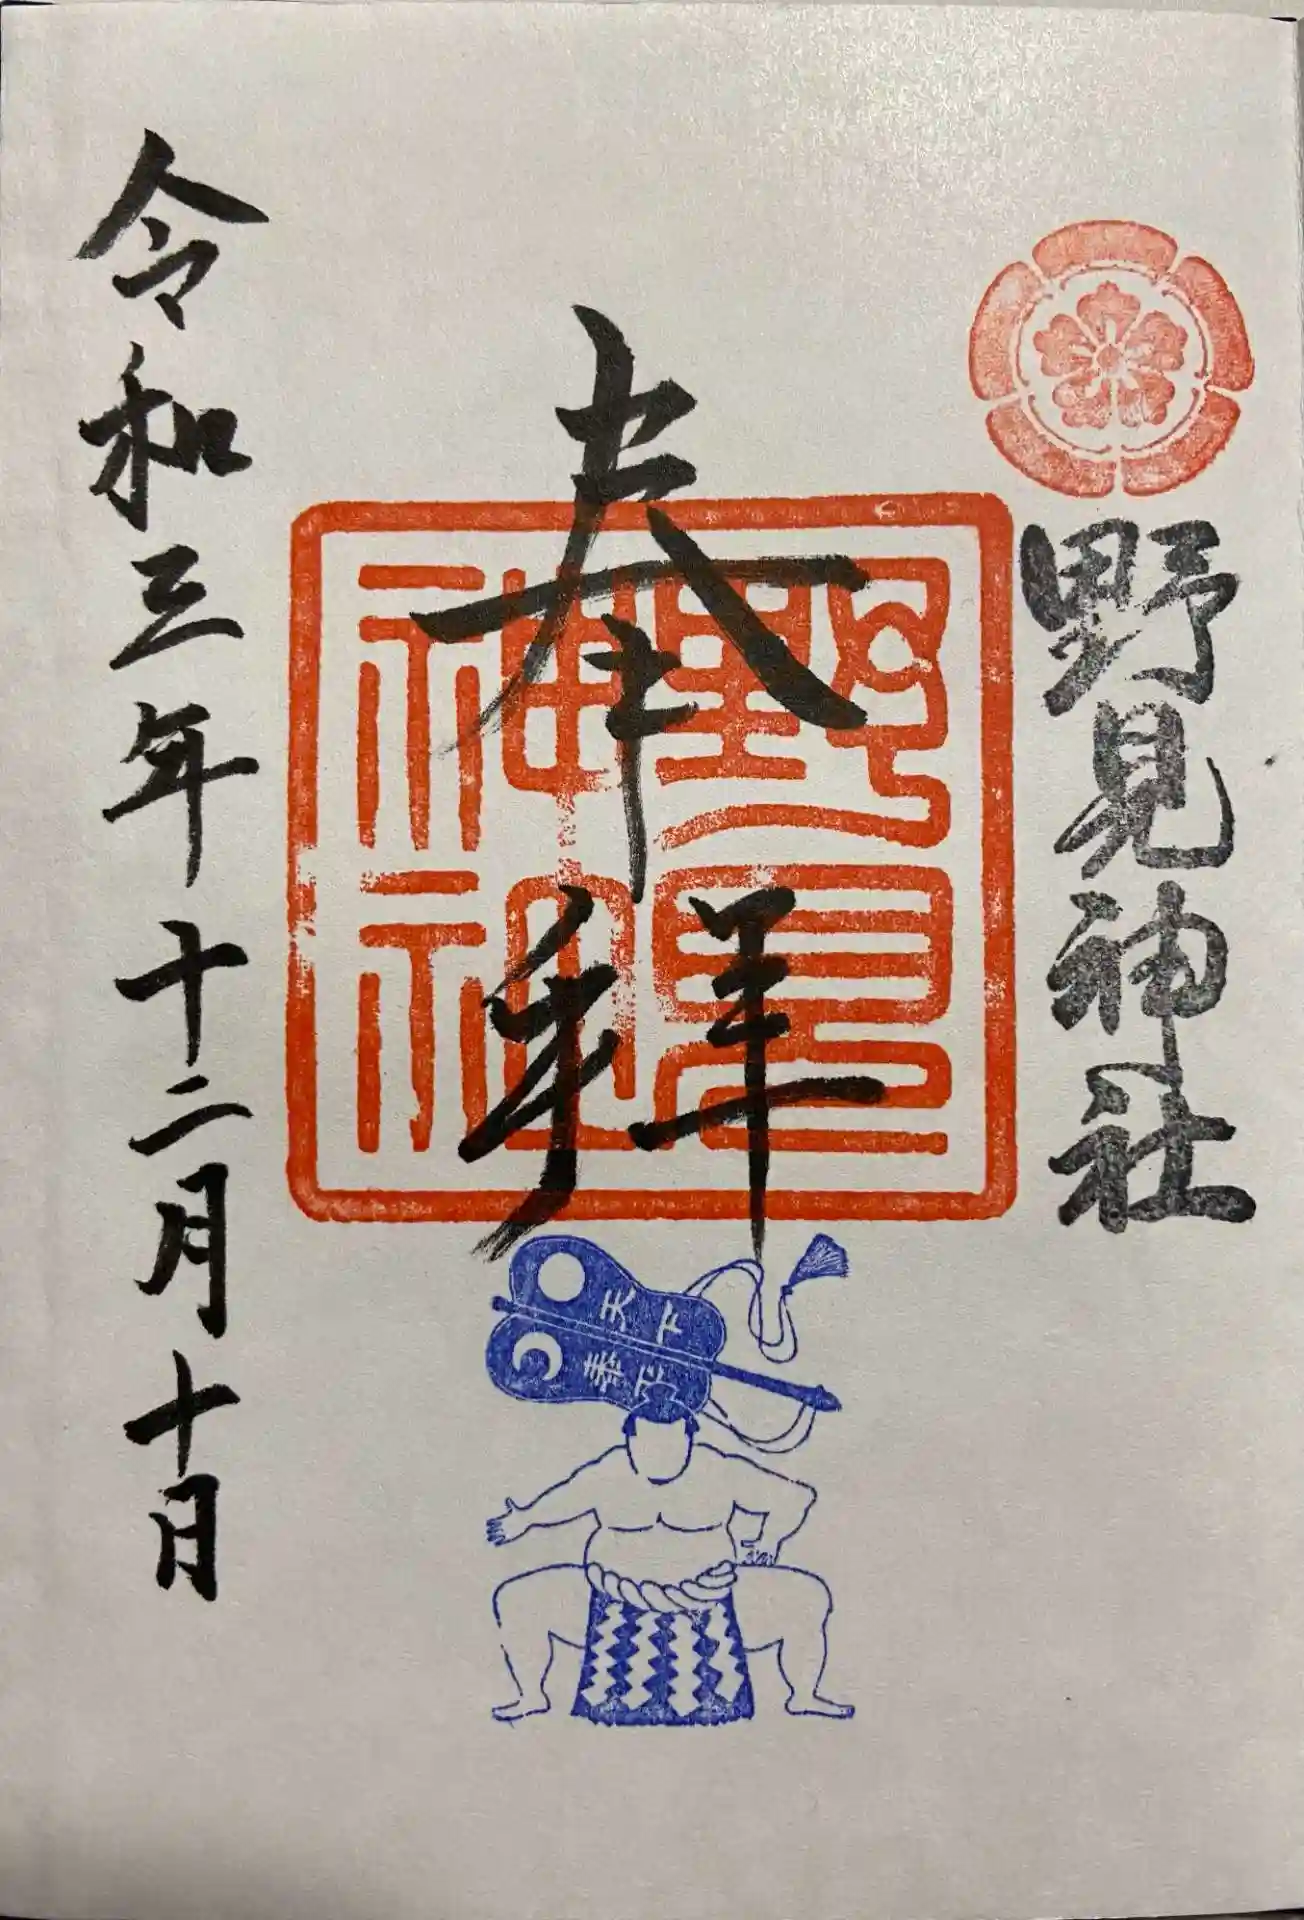 野見神社
奉拝
野見
神社
令和三年十二月十日
天下
泰平